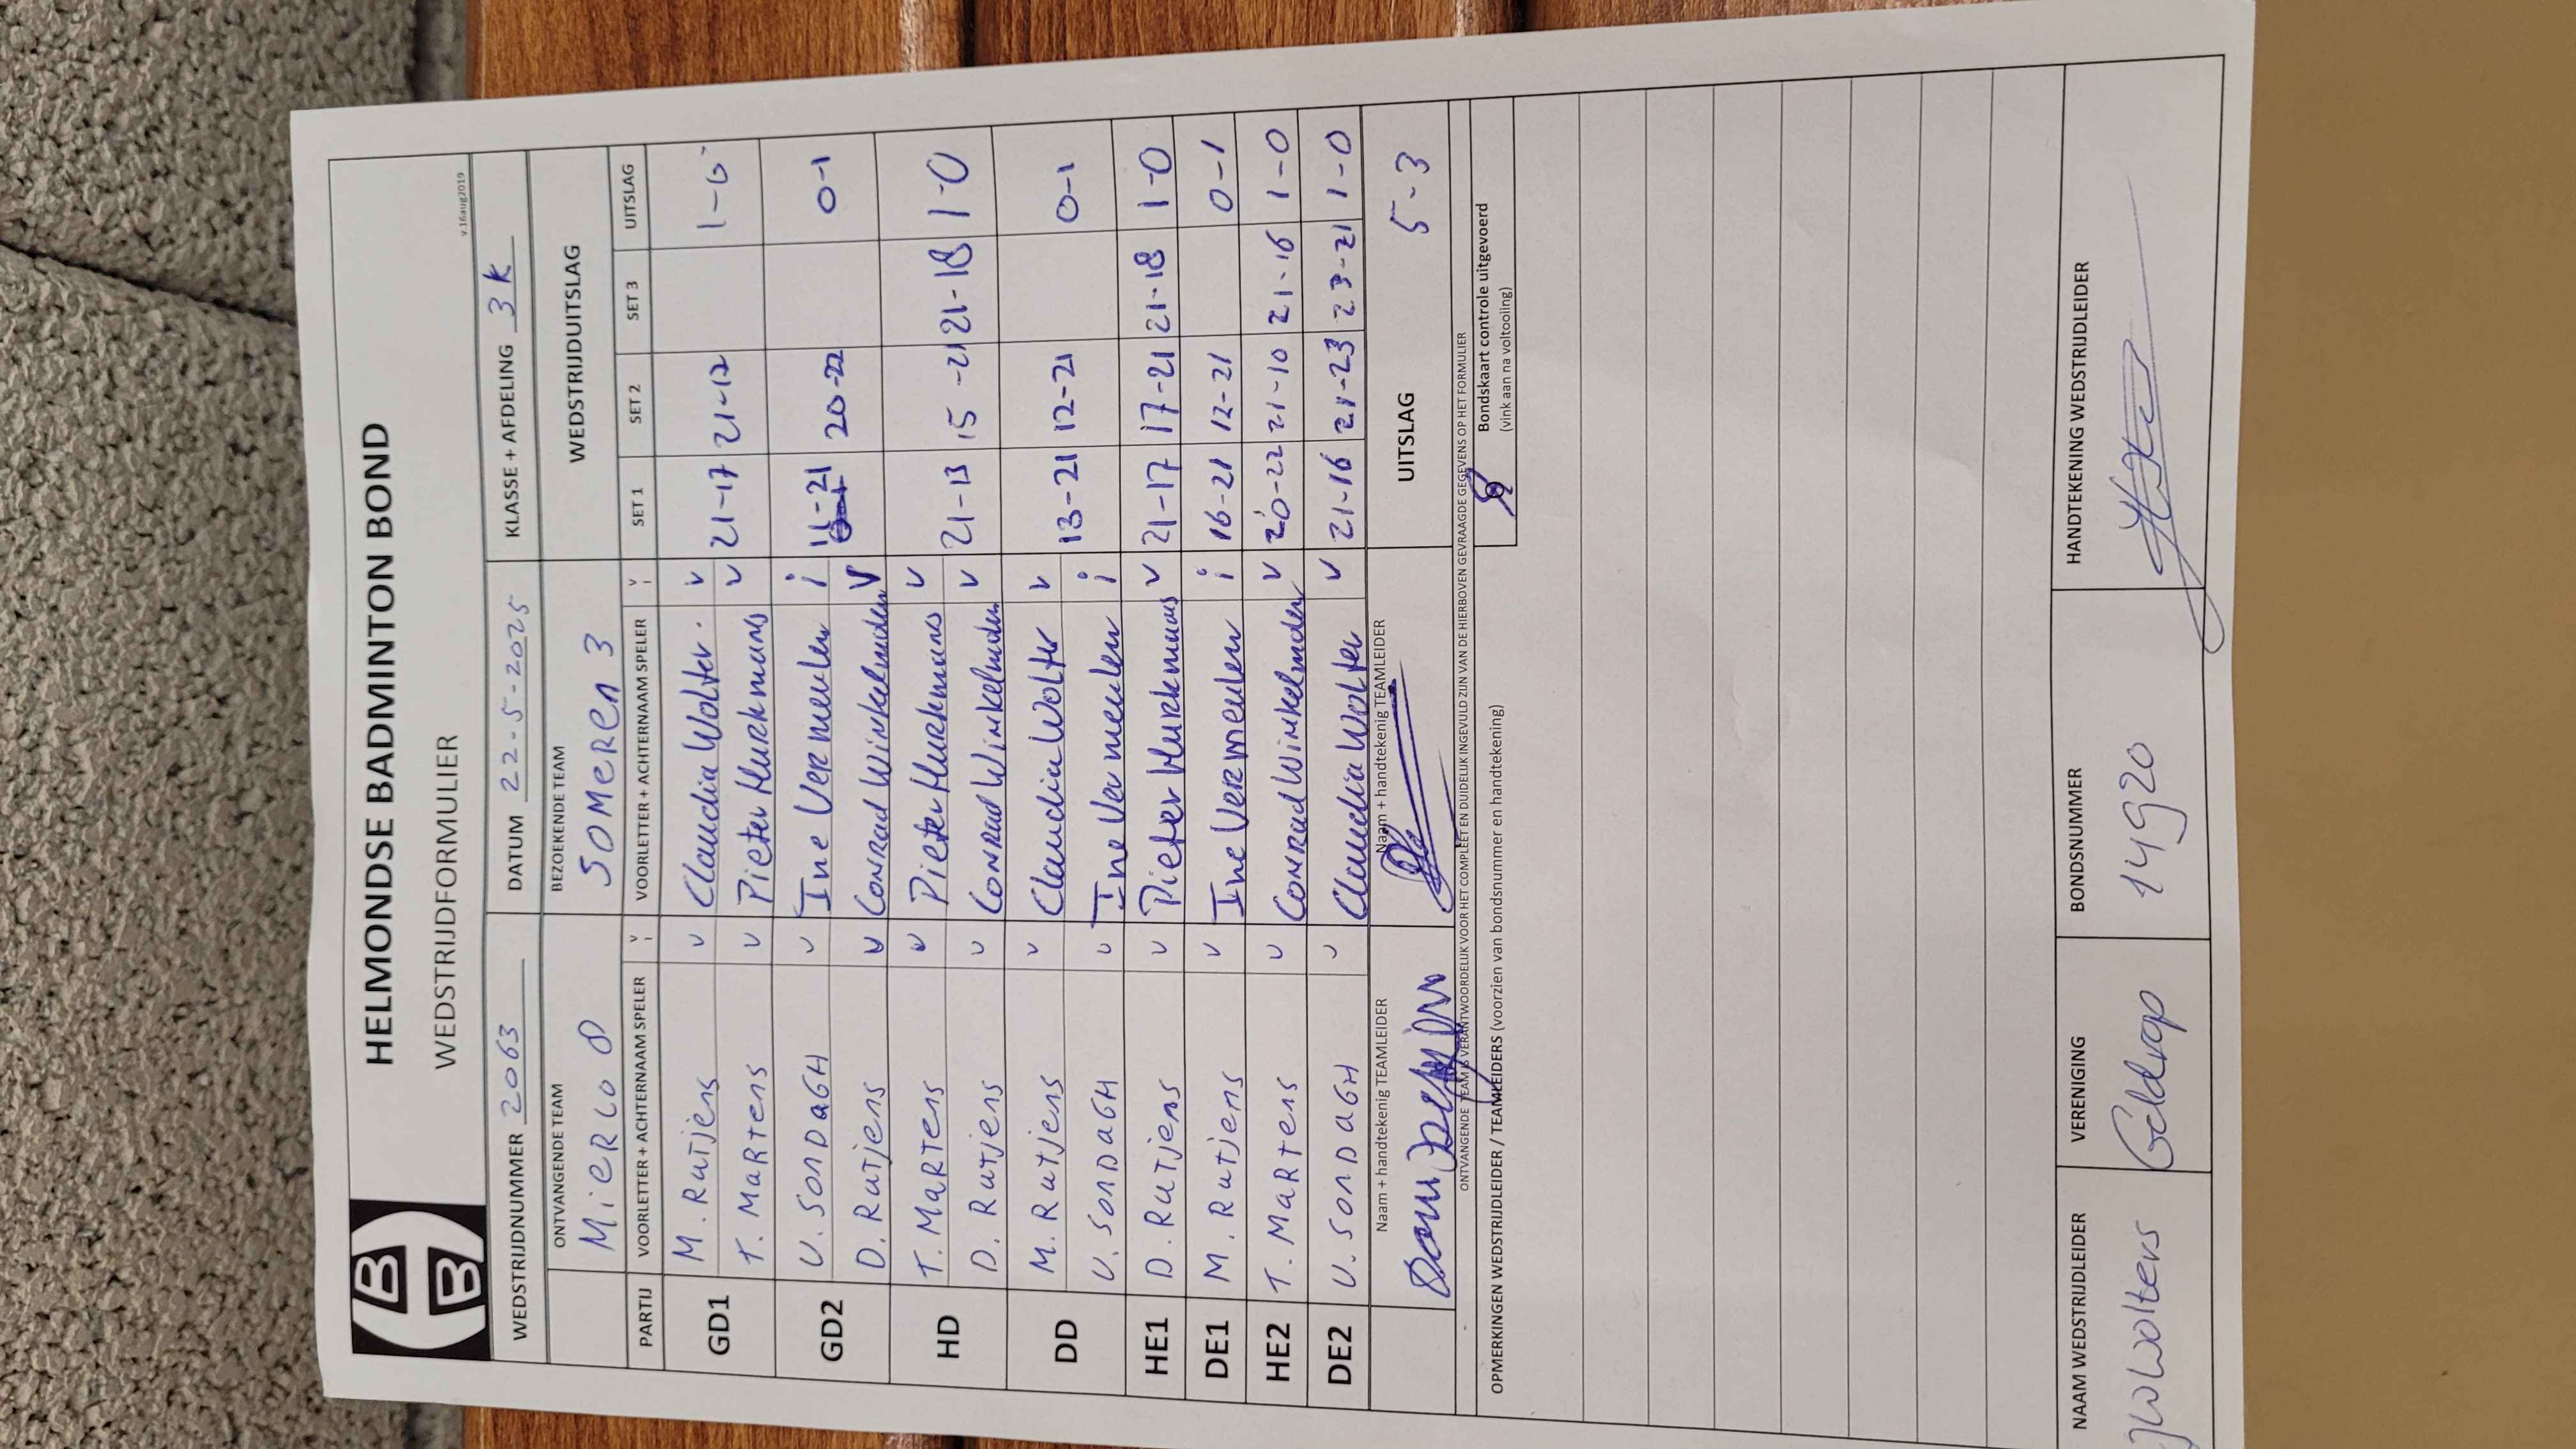 HELMONDSE BADMINTON BOND
WEDSTRIJDFORMULIER
v.16aug2019
WEDSTRIJDNUMMER 2063 DATUM 22-5-2025 KLASSE + AFDELING 3K
ONTVANGENDE TEAM BEZOEKENDE TEAM WEDSTRIJDUITSLAG
MierLo 8 SOMEREN 3
PARTIJ VOORLETTER + ACHTERNAAM SPELER V i VOORLETTER + ACHTERNAAM SPELER V i SET 1 SET 2 SET 3 UITSLAG
M. Rutjens v Claudia Wolter. v
GD1 21-17 21-12 1-0
T. MARTens v Pieter Hurkmans v
V. SONDAGH v Ine Vermeulen i
GD2 11-21 20-22 0-1
D. Rutjens v Conrad Winkelmolen v
T. MARTens v Pieter Hurkmans v
HD 21-13 15-21 21-18 1-0
D. Rutjens v Conrad Winkelmolen v
M. Rutjens v Claudia Wolter v
DD 13-21 12-21 0-1
V. SONDAGH v Ine Vermeulen i
HE1 D. Rutjens v Pieter Hurkmans v 21-17 17-21 21-18 1-0
DE1 M. Rutjens v Ine Vermeulen i 16-21 12-21 0-1
HE2 T. MARTens v Conrad Winkelmolen v 20-22 21-10 21-16 1-0
DE2 V. SONDAGH v Claudia Wolter v 21-16 21-23 23-21 1-0
Naam + handtekenig TEAMLEIDER Naam + handtekenig TEAMLEIDER UITSLAG 5-3
ONTVANGENDE TEAM IS VERANTWOORDELIJK VOOR HET COMPLEET EN DUIDELIJK INGEVULD ZIJN VAN DE HIERBOVEN GEVRAAGDE GEGEVENS OP HET FORMULIER
OPMERKINGEN WEDSTRIJDLEIDER / TEAMLEIDERS (voorzien van bondsnummer en handtekening)
Bondskaart controle uitgevoerd
(vink aan na voltooiing)
NAAM WEDSTRIJDLEIDER VERENIGING BONDSNUMMER HANDTEKENING WEDSTRIJDLEIDER
JWWolters Geldrop 14920